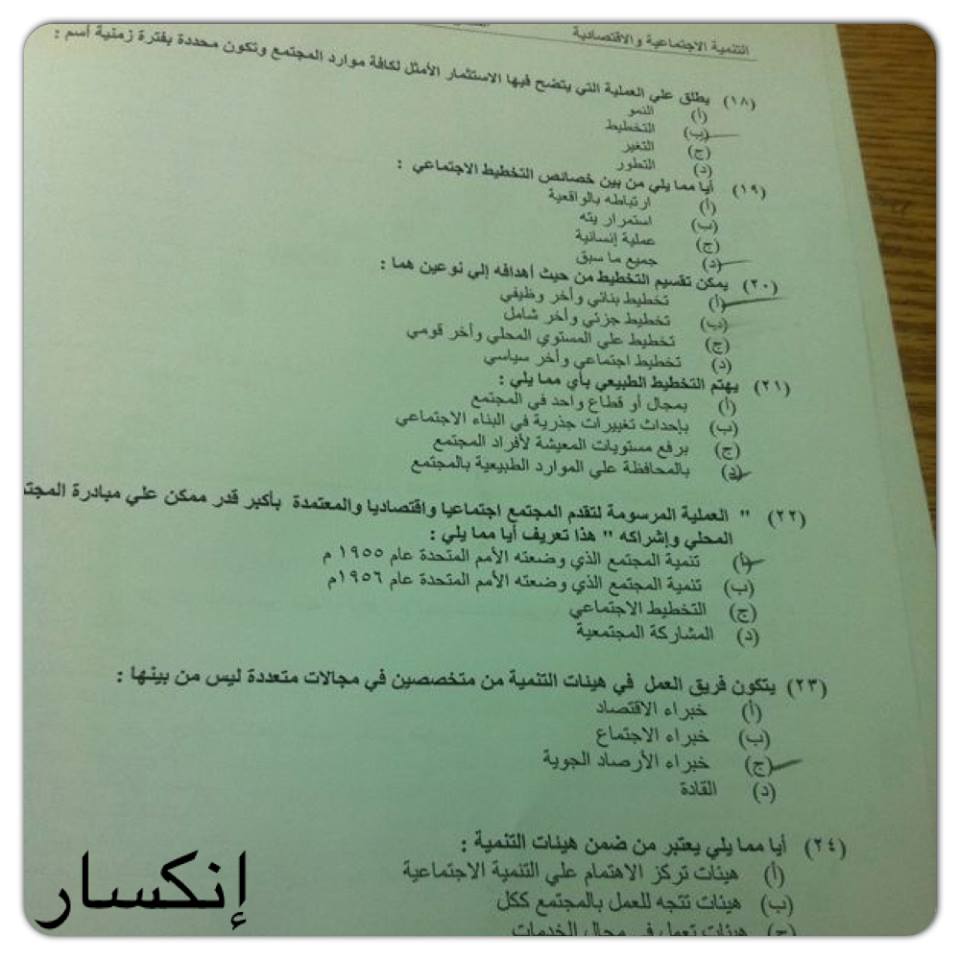 التنمية الاجتماعية والاقتصادية
(١٨) يطلق علي العملية التي يتضح فيها الاستثمار الأمثل لكافة موارد المجتمع وتكون محددة بفترة زمنية أسم :
(أ) النمو
(ب) التخطيط
(ج) التغير
(د) التطور
(١٩) أيا مما يلي من بين خصائص التخطيط الاجتماعي :
(أ) ارتباطه بالواقعية
(ب) استمرار يته
(ج) عملية إنسانية
(د) جميع ما سبق
(٢٠) يمكن تقسيم التخطيط من حيث أهدافه إلي نوعين هما :
(أ) تخطيط بنائي وأخر وظيفي
(ب) تخطيط جزئي وأخر شامل
(ج) تخطيط علي المستوي المحلي وأخر قومي
(د) تخطيط اجتماعي وأخر سياسي
(٢١) يهتم التخطيط الطبيعي بأي مما يلي :
(أ) بمجال أو قطاع واحد في المجتمع
(ب) بإحداث تغييرات جذرية في البناء الاجتماعي
(ج) برفع مستويات المعيشة لأفراد المجتمع
(د) بالمحافظة علي الموارد الطبيعية بالمجتمع
(٢٢) " العملية المرسومة لتقدم المجتمع اجتماعيا واقتصاديا والمعتمدة بأكبر قدر ممكن علي مبادرة المجت
المحلي وإشراكه " هذا تعريف أيا مما يلي :
(أ) تنمية المجتمع الذي وضعته الأمم المتحدة عام ١٩٥٥ م
(ب) تنمية المجتمع الذي وضعته الأمم المتحدة عام ١٩٥٦م
(ج) التخطيط الاجتماعي
(د) المشاركة المجتمعية
(٢٣) يتكون فريق العمل في هيئات التنمية من متخصصين في مجالات متعددة ليس من بينها :
(أ) خبراء الاقتصاد
(ب) خبراء الاجتماع
(ج) خبراء الأرصاد الجوية
(د) القادة
(٢٤) أيا مما يلي يعتبر من ضمن هيئات التنمية :
(أ) هيئات تركز الاهتمام علي التنمية الاجتماعية
(ب) هيئات تتجه للعمل بالمجتمع ككل
(ج) هيئات تعمل في مجال الخدمات
إنكسار